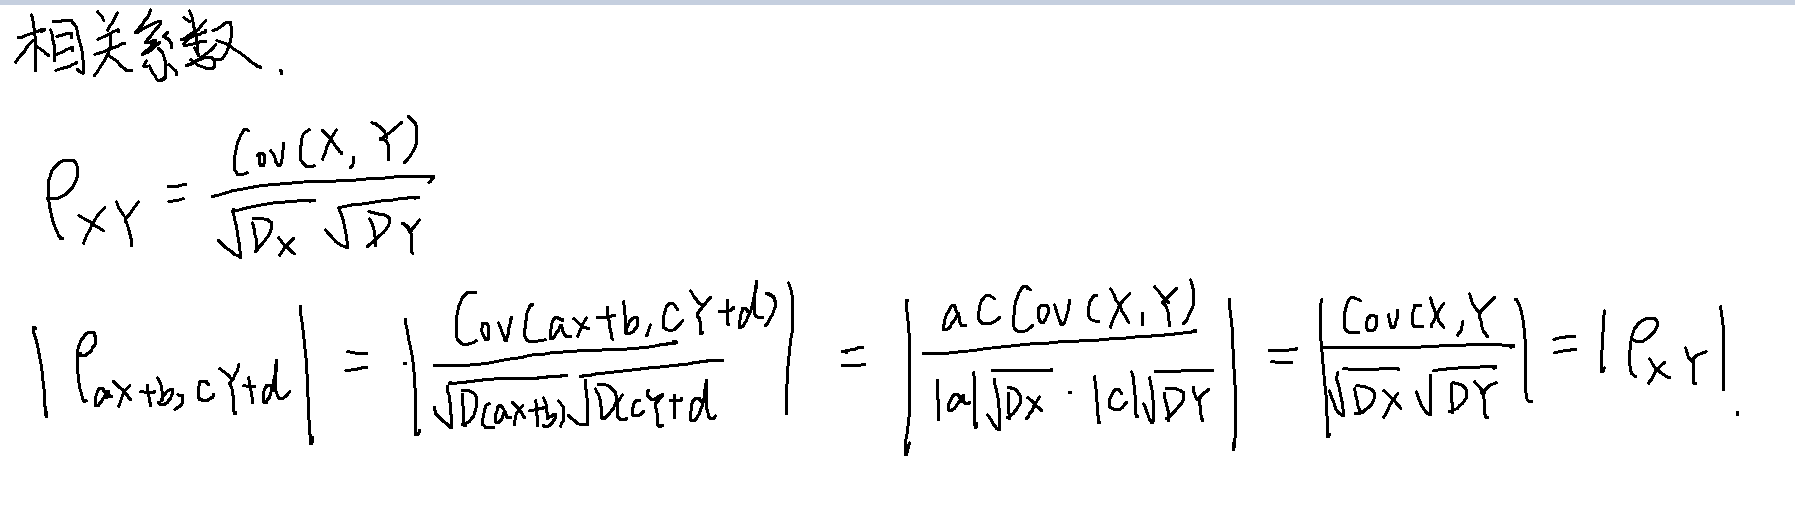 相关系数.
ρ_{XY} = \frac{Cov(X, Y)}{\sqrt{DX} \sqrt{DY}}
|ρ_{ax+b, cY+d}| = |\frac{Cov(ax+b, cY+d)}{\sqrt{D(ax+b)} \sqrt{D(cY+d}}| = |\frac{ac Cov(X, Y)}{|a|\sqrt{DX} · |c|\sqrt{DY}}| = |\frac{Cov(X, Y}{\sqrt{DX} \sqrt{DY}}| = |ρ_{XY}|.